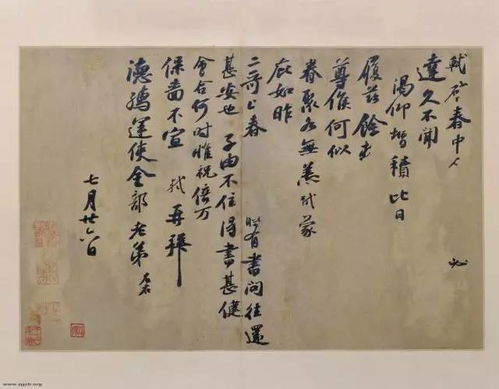 軾啓春中人必
達久不聞
渴仰增積比日
履茲餘
尊候何似
眷聚各無恙軾蒙
庇如昨
二哥上春有書問往還
甚安也子由不住得書甚健
會合何時惟祝倍万
保嗇不宣軾再拜
德孺運使金部老弟
七月廿六日